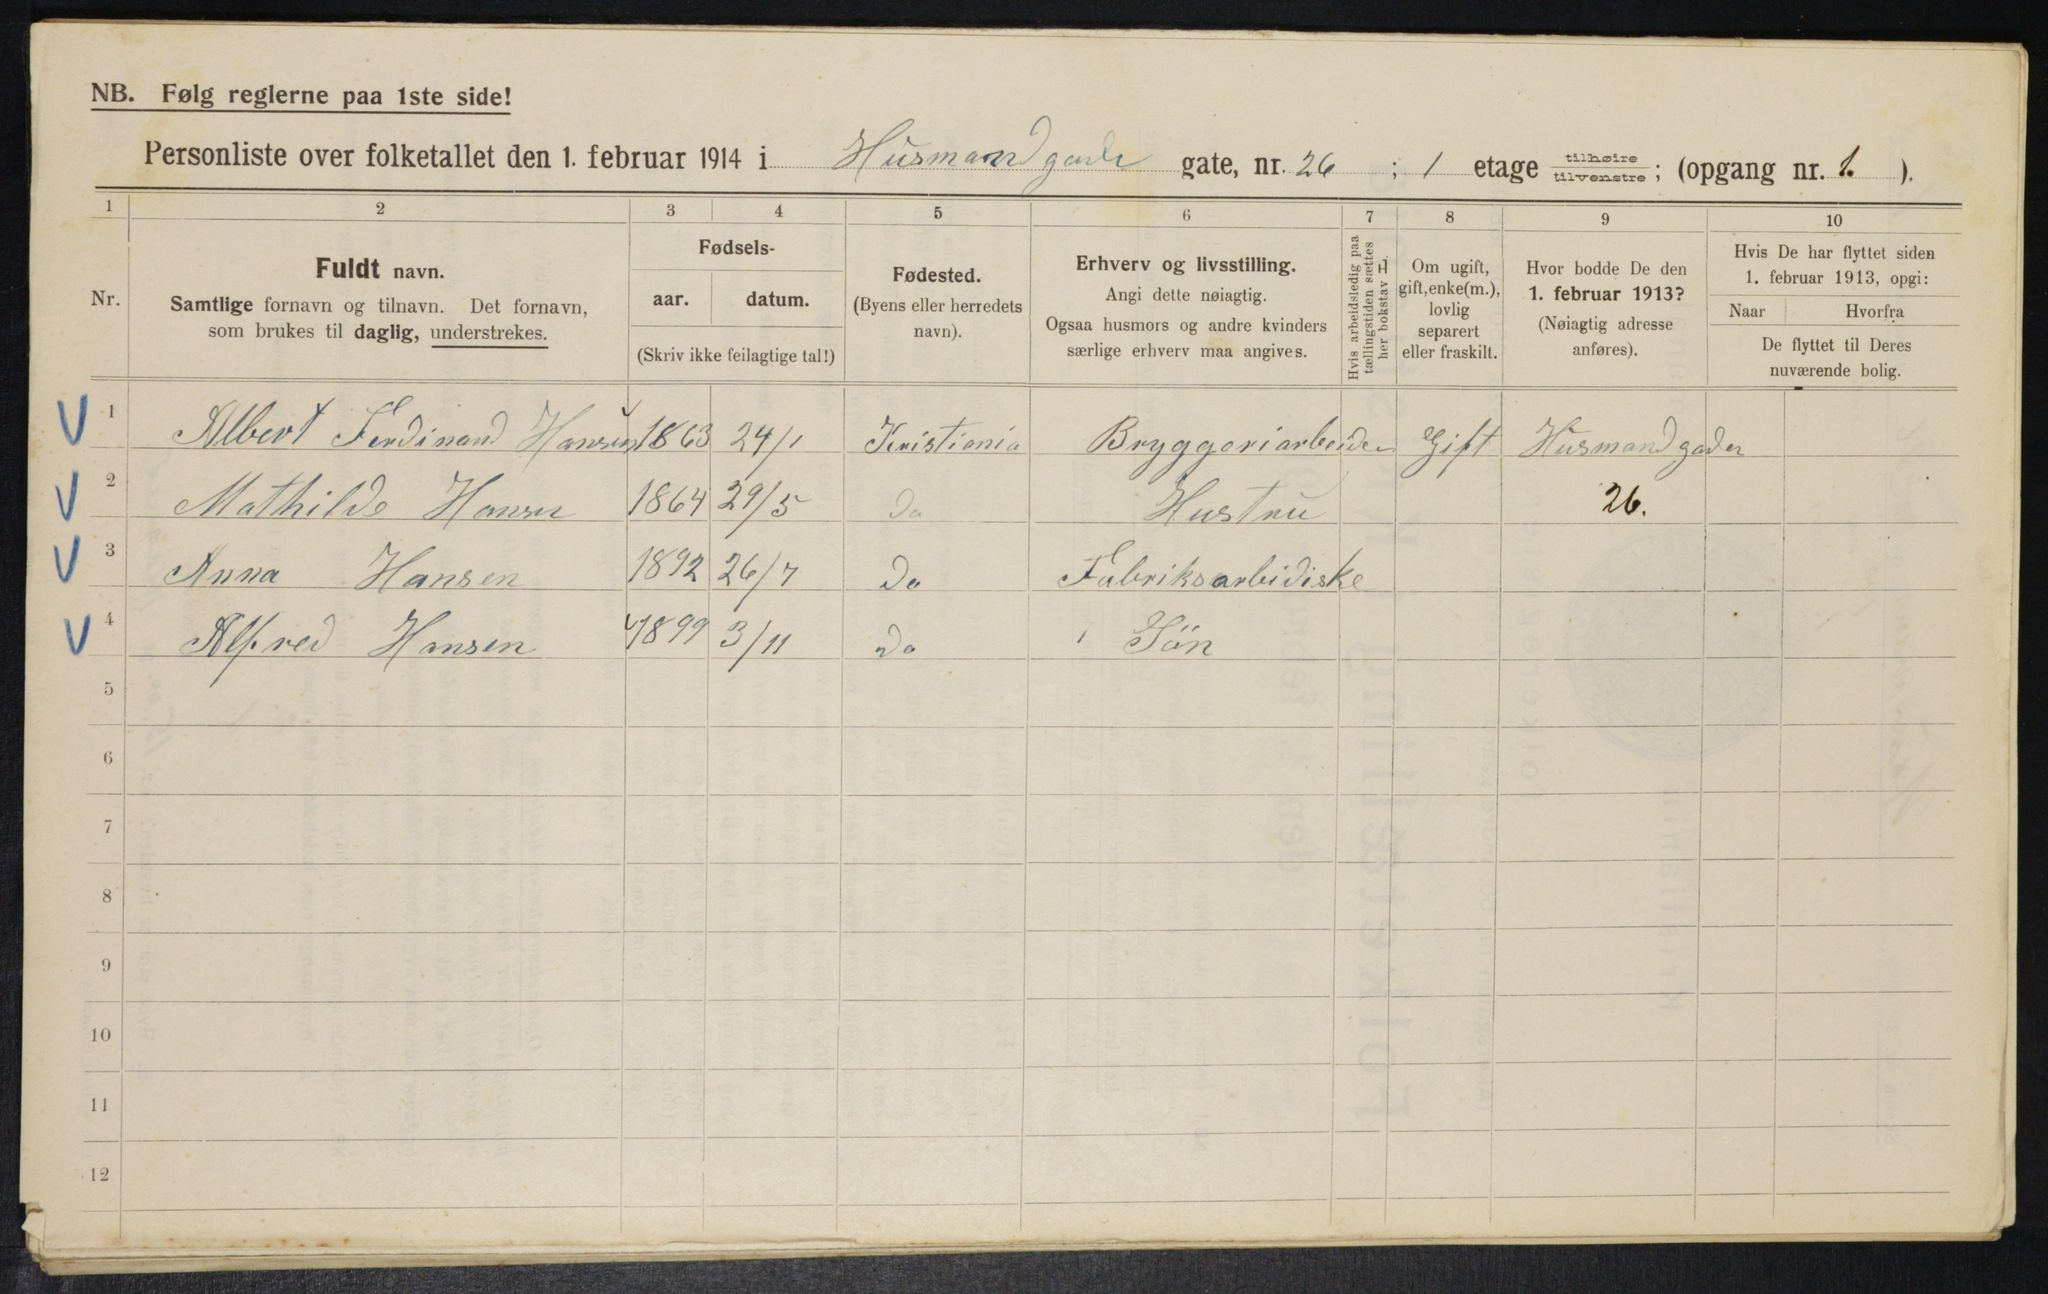 NB. Følg reglerne paa 1ste side!
Personliste over folketallet den 1. februar 1914 i Husmandgade gate, nr. 26 ; 1 etage tilhøire tilvenstre ; (opgang nr. 1. ).
1 2 3 4 5 6 7 8 9 10
Nr.
Fuldt navn.
Samtlige fornavn og tilnavn. Det fornavn,
som brukes til daglig, understrekes.
Fødsels-
aar. datum.
(Skriv ikke feilagtige tal!)
Fødested.
(Byens eller herredets
navn).
Erhverv og livsstilling.
Angi dette nøiagtig.
Ogsaa husmors og andre kvinders
særlige erhverv maa angives.
Hvis arbeidsledig paa
tællingstiden sættes
her bokstav A.
Om ugift,
gift, enke(m.),
lovlig
separert
eller fraskilt.
Hvor bodde De den
1. februar 1913?
(Nøiagtig adresse
anføres).
Hvis De har flyttet siden
1. februar 1913, opgi:
Naar Hvorfra
De flyttet til Deres
nuværende bolig.
1 Albert Ferdinand Hansen 1863 24/1 Kristiania Bryggeriarbeider Gift Husmandgaden
2 Mathilde Hansen 1864 29/5 Do Hustru 26.
3 Anna Hansen 1892 26/7 Do Fabriksarbidiske
4 Alfred Hansen 1899 3/11 Do Sön
5
6
7
8
9
10
11
12